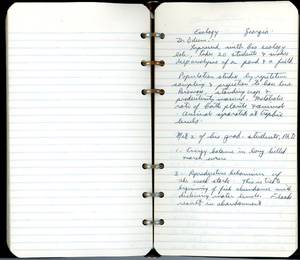 Ecology Georgia
Dr. Odum:
Impressed with his ecology
lab, takes 20 students & makes
deep analyses of a pond & a field
Population studies by repetitive
sampling &
standing crop &
productivity measured. Metabolic
rate of both plants & animals
animals separated at trophic
levels.
Met 2 of his grad. students, Ph.D.
1. Energy balance in long billed
marsh wrens
2. Reproductive behaviour
of the wood stork. This is tied to
beginning of fish abundance with
declining water levels. Floods
result in abandonment